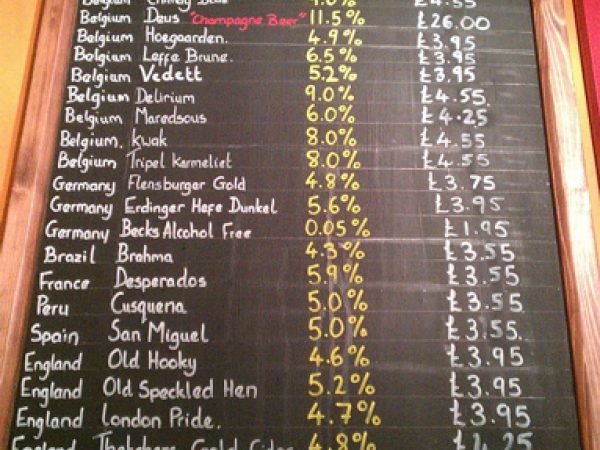 Belgium Chimay Blue 9.0% £4.55
Belgium Deus "Champagne Beer" 11.5% £26.00
Belgium Hoegaarden. 4.9% £3.95
Belgium Leffe Brune. 6.5% £3.95
Belgium Vedett 5.2% £3.95
Belgium Delirium 9.0% £4.55
Belgium Maredsous 6.0% £4.25
Belgium. Kwak 8.0% £4.55
Belgium Tripel Karmeliet 8.0% £4.55
Germany Flensburger Gold 4.8% £3.75
Germany Erdinger Hefe Dunkel 5.6% £3.95
Germany Becks Alcohol Free 0.05% £1.95
Brazil Brahma 4.3% £3.55
France Desperados 5.9% £3.55
Peru Cusquena 5.0% £3.55
Spain San Miguel 5.0% £3.55
England Old Hooky 4.6% £3.95
England Old Speckled Hen 5.2% £3.95
England London Pride. 4.7% £3.95
England Thatchers Gold Cider 4.8% £4.25